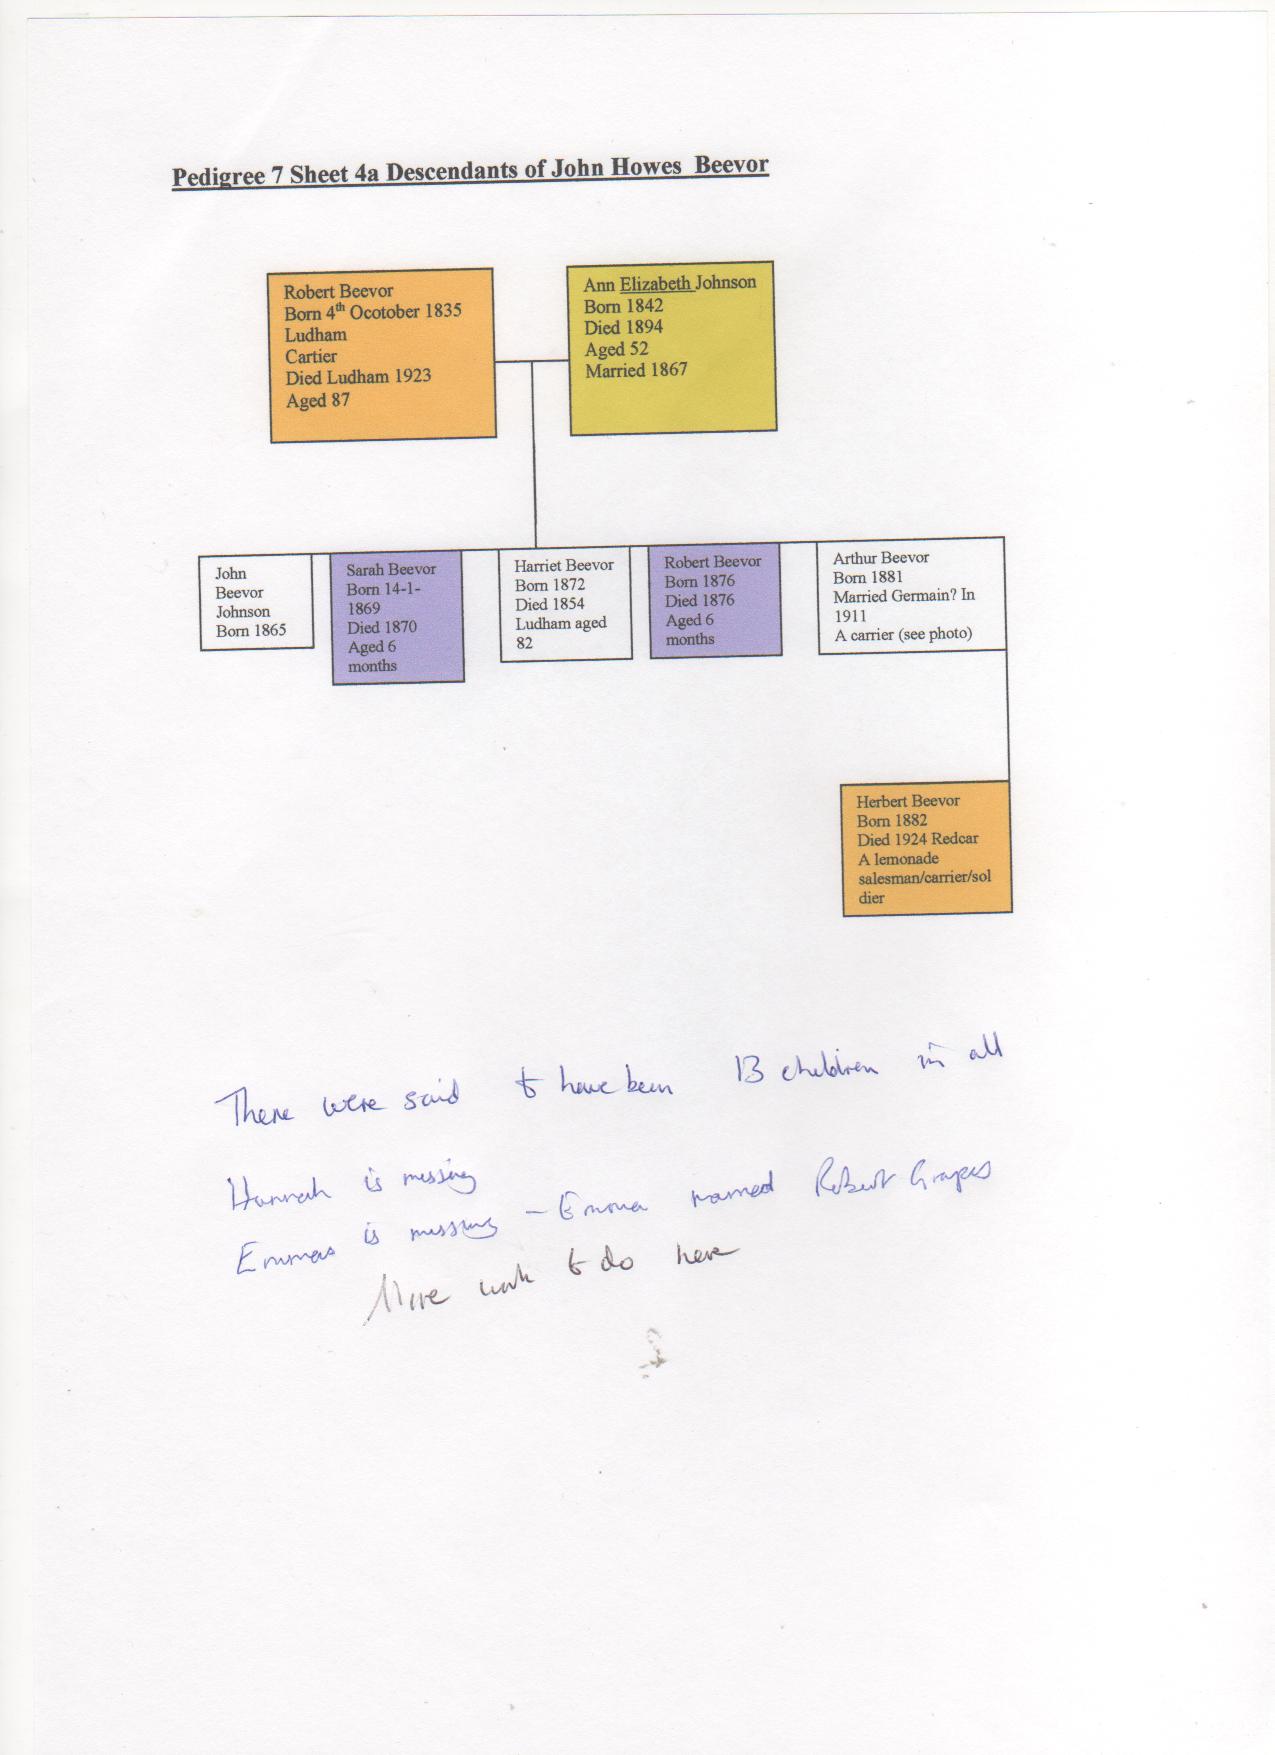 Pedigree 7 Sheet 4a Descendants of John Howes Beevor
Robert Beevor
Born 4th Ocotober 1835
Ludham
Cartier
Died Ludham 1923
Aged 87
Ann Elizabeth Johnson
Born 1842
Died 1894
Aged 52
Married 1867
John
Beevor
Johnson
Born 1865
Sarah Beevor
Born 14-1-
1869
Died 1870
Aged 6
months
Harriet Beevor
Born 1872
Died 1854
Ludham aged
82
Robert Beevor
Born 1876
Died 1876
Aged 6
months
Arthur Beevor
Born 1881
Married Germain? In
1911
A carrier (see photo)
Herbert Beevor
Born 1882
Died 1924 Redcar
A lemonade
salesman/carrier/sol
dier
There were said to have been 13 children in all
Hannah is missing
Emma is missing - Emma married Robert Grapes
More work to do here